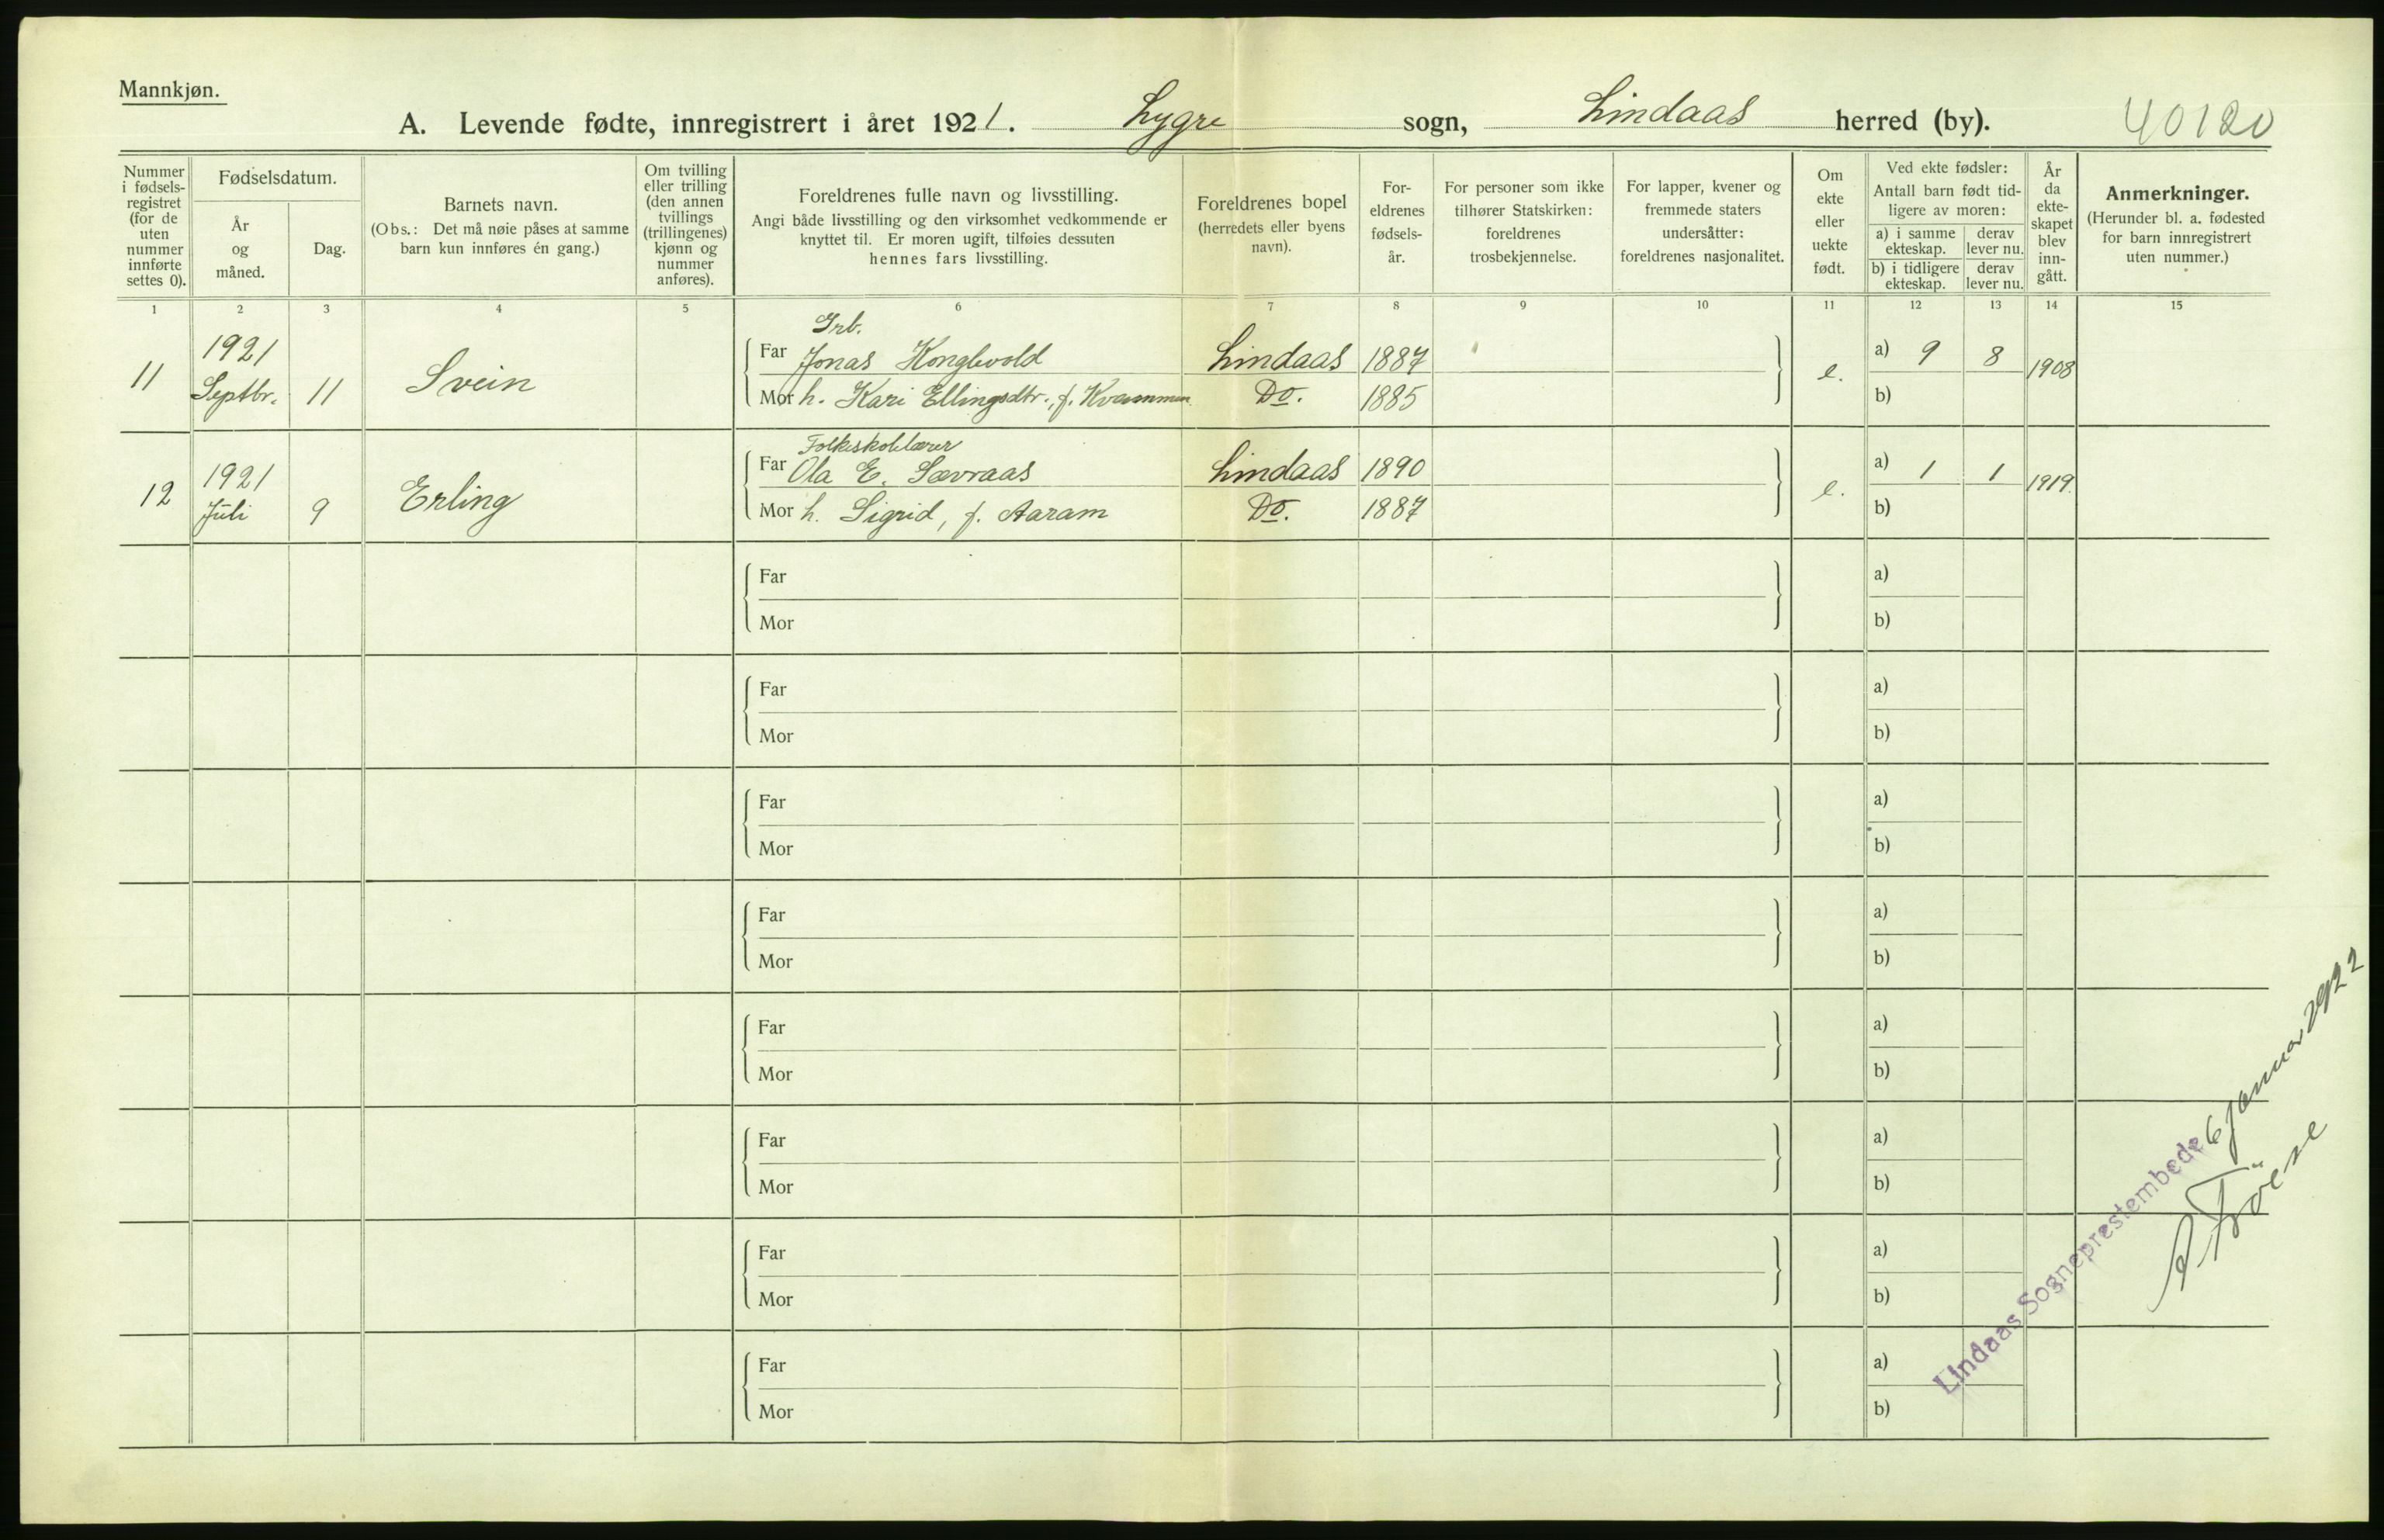 Mannkjøn.
A. Levende fødte, innregistrert i året 1921. Lygre sogn, Lindaas herred (by). 40120
Nummer i fødsels-registret (for de uten nummer innførte settes 0).
Fødselsdatum.
År og måned.
Dag.
Barnets navn.
(Obs.: Det må nøie påses at samme barn kun innføres én gang.)
Om tvilling eller trilling (den annen tvillings (trillingenes) kjønn og nummer anføres).
Foreldrenes fulle navn og livsstilling.
Angi både livsstilling og den virksomhet vedkommende er knyttet til. Er moren ugift, tilføies dessuten hennes fars livsstilling.
Foreldrenes bopel (herredets eller byens navn).
For-eldrenes fødsels-år.
For personer som ikke tilhører Statskirken: foreldrenes trosbekjennelse.
For lapper, kvener og fremmede staters undersåtter: foreldrenes nasjonalitet.
Om ekte eller uekte født.
Ved ekte fødsler:
Antall barn født tid-ligere av moren:
a) i samme ekteskap.
derav lever nu.
b) i tidligere ekteskap.
derav lever nu.
År da ekte-skapet blev inn-gått.
Anmerkninger.
(Herunder bl. a. fødested for barn innregistrert uten nummer.)
1 2 3 4 5 6 7 8 9 10 11 12 13 14 15
Grb.
11 1921 Septbr. 11 Svein Far Jonas Konglevold Lindaas 1887 e. a) 9 8 1908
Mor h. Kari Ellingsdtr., f. Kvammen Do. 1885 b)
Folkeskolelærer
12 1921 Juli 9 Erling Far Ola E. Sævraas Lindaas 1890 e. a) 1 1 1919.
Mor h. Sigrid, f. Aaram Do. 1887 b)
Far a)
Mor b)
Far a)
Mor b)
Far a)
Mor b)
Far a)
Mor b)
Far a)
Mor b)
Far a)
Mor b)
Far a)
Mor b)
Far a)
Mor b)
Lindaas Sogneprestembede 6 januar 1922